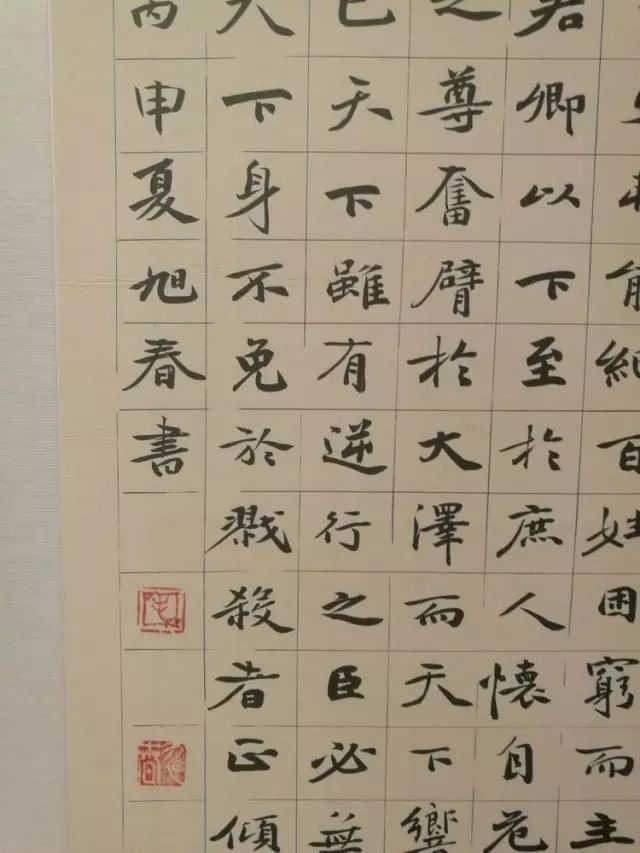 紀百姓困窮而主
君卿以下至於庶人懷自危
之尊奮臂於大澤而天下響
已天下雖有逆行之臣必無
天下身不免於戮殺者正傾
丙申夏旭春書